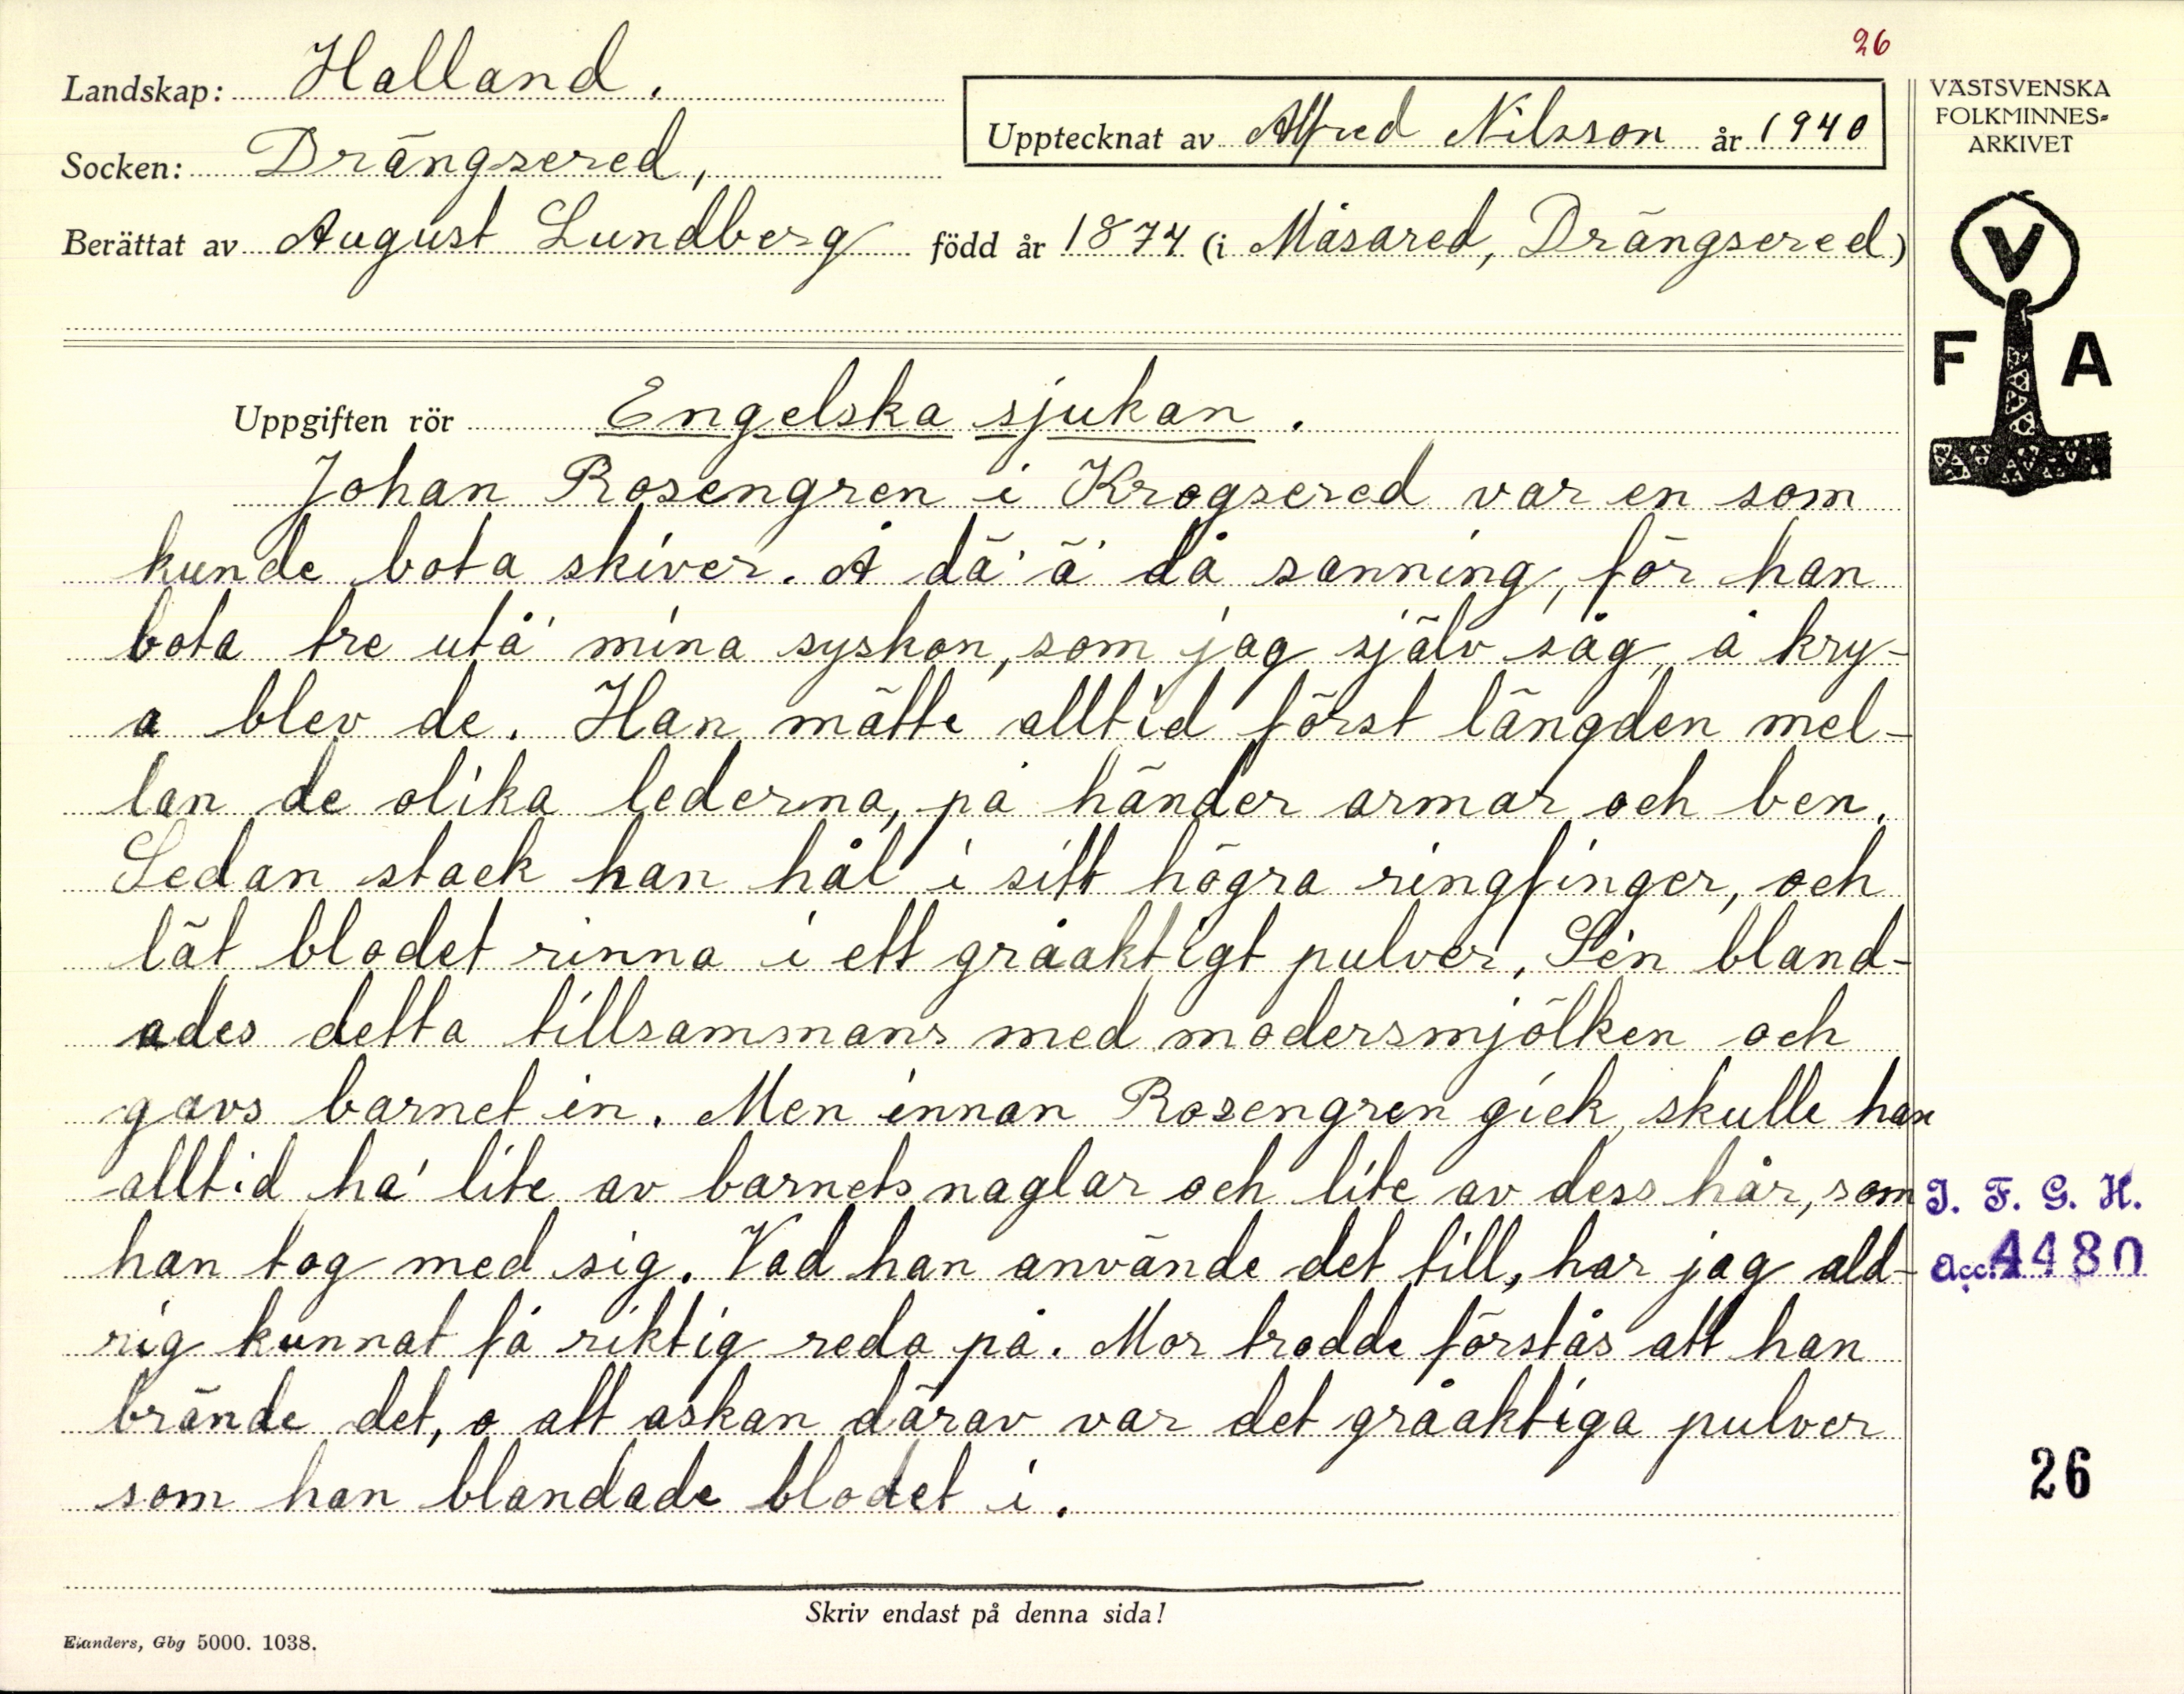 26
Landskap: Halland.
Socken: Drängsered,
Upptecknat av Alfred Nilsson år 1940
Berättat av August Lundberg född år 1874 (i Måsared, Drängsered)
VÄSTSVENSKA
FOLKMINNES-
ARKIVET
V
F A
Uppgiften rör Engelska sjukan.
Johan Rosengren i Krogsered var en som
kunde bota skiver. Å dä' ä' då sanning, för han
bota tre utå' mina syskon, som jag själv såg, å kry-
a blev de. Han mätte alltid först längden mel-
lan de olika lederna, på händer armar och ben.
Sedan stack han hål i sitt högra ringfinger, och
lät blodet rinna i ett gråaktigt pulver. Sen bland-
ades detta tillsammans med modersmjölken och
gavs barnet in. Men innan Rosengren gick, skulle han
alltid ha' lite av barnets naglar och lite av dess hår, som
han tog med sig. Vad han använde det till, har jag ald-
rig kunnat få riktig reda på. Mor trodde förstås att han
brände det, o att askan därav var det gråaktiga pulver
som han blandade blodet i.
I. F. G. H.
Acc. 4480
26
Skriv endast på denna sida!
Elanders, Gbg 5000. 1038.